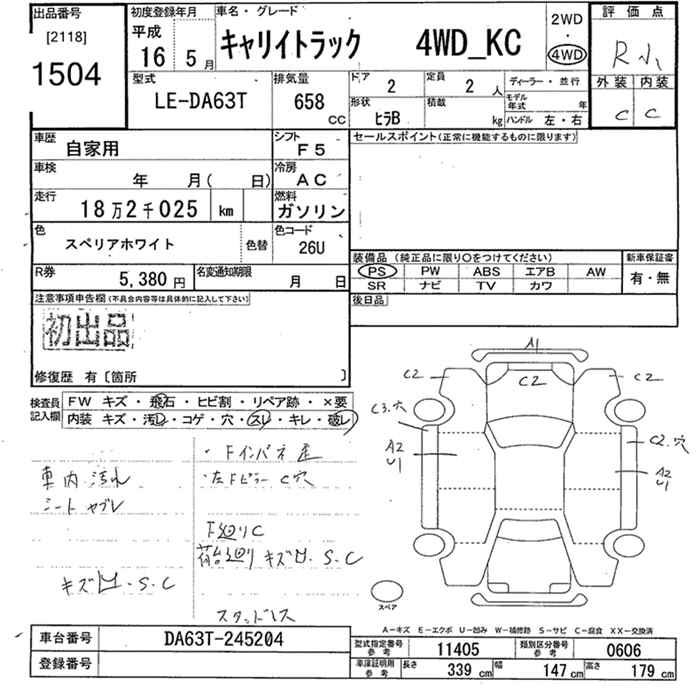 出品番号
[2118]
1504
初度登録年月
平成
16 5月
車名・グレード
キャリイトラック 4WD_KC
2WD
・
4WD
評価点
R
外装 内装
C C
型式
LE-DA63T
排気量
658
CC
ドア
2
定員
2 人
ディーラー・並行
形状
ヒラB
積載
kg
モデル年式 年
ハンドル 左・右
車歴
自家用
シフト
F5
セールスポイント(正常に機能するものに限ります)
車検
年 月( 日)
冷房
AC
走行
18万2千025 km
燃料
ガソリン
色
スペリアホワイト
色替
色コード
26U
装備品 (純正品に限り〇をつけてください)
PS PW ABS エアB AW
SR ナビ TV カワ
新車保証書
有・無
R券
5,380 円
名変通知期限
月 日
後日品
注意事項申告欄(不具合内容等は具体的に記入して下さい)
初出品
修復歴 有〔箇所 〕
検査員記入欄
FW キズ・飛石・ヒビ割・リペア跡・×要
内装 キズ・汚レ・コゲ・穴・スレ・キレ・破レ
・Fインパネ
車内 汚れ
・左Fピラー C穴
シート ヤブレ
下廻りC
荷台廻り キズ凹.S.C
キズ凹.S.C
スタッドレス
A1
C2 C2 C2
C3.穴
C2.穴
A2
U1
A2
U1
スペア
A−キズ E−エクボ U−凹み W−補修跡 S−サビ C−腐食 XX−交換済
車台番号
DA63T-245204
登録番号
型式指定番号
参考
11405
類別区分番号
参考
0606
車庫証明用
参考
長さ
339 cm
幅
147 cm
高さ
179 cm